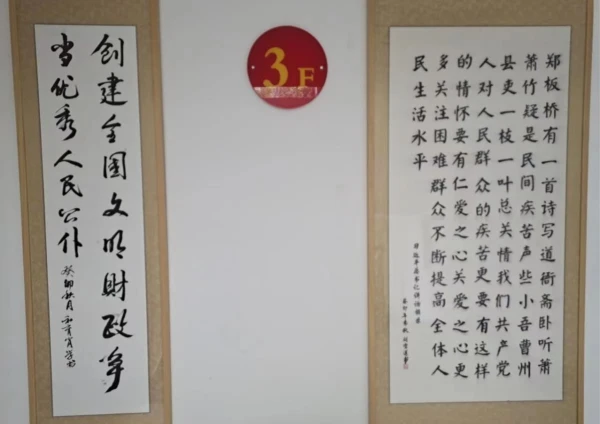 创建全国文明财政争
当优秀人民公仆
癸卯秋月
3F
郑板桥有一首诗写道衙斋卧听萧
萧竹疑是民间疾苦声些小吾曹州
县吏一枝一叶总关情我们共产党
人对人民群众的疾苦更要有这样
的情怀要有仁爱之心关爱之心更
多关注困难群众不断提高全体人
民生活水平
习近平总书记讲话摘录